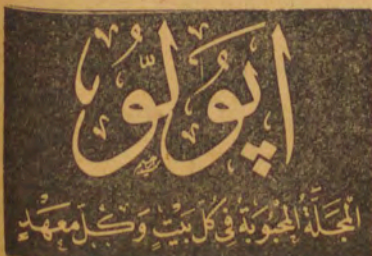 اپوللّو
المجلَّةُ المحْبُوبَةُ فِي كُلِّ بَيْتٍ وَكُلِّ مَعْهَدٍ